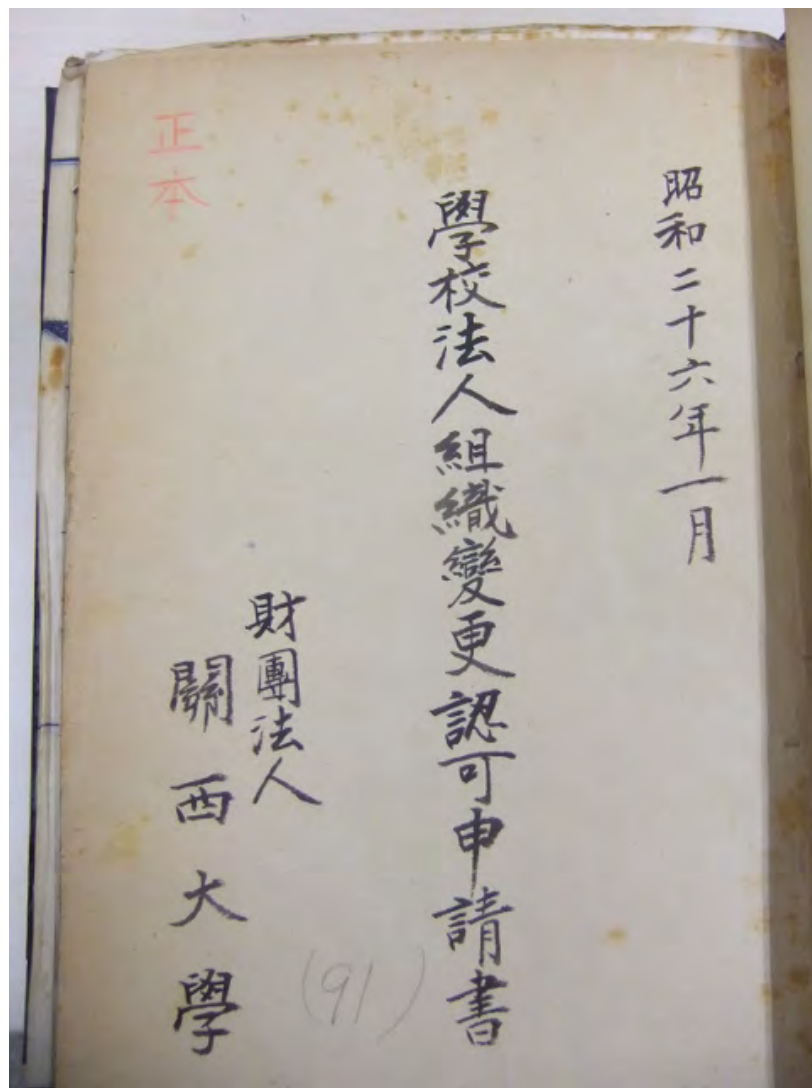 昭和二十六年一月
學校法人組織變更認可申請書
財團法人
關西大學
正本
(91)